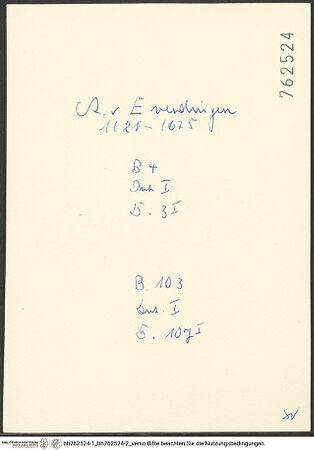 762524
A. v. Everdingen
1621-1675
B 4
Dut. I
D. 3 I
B. 103
Dut. I
D. 107 I
bh762524-1_bh762524-2_verso Bitte beachten Sie die Nutzungsbedingungen.